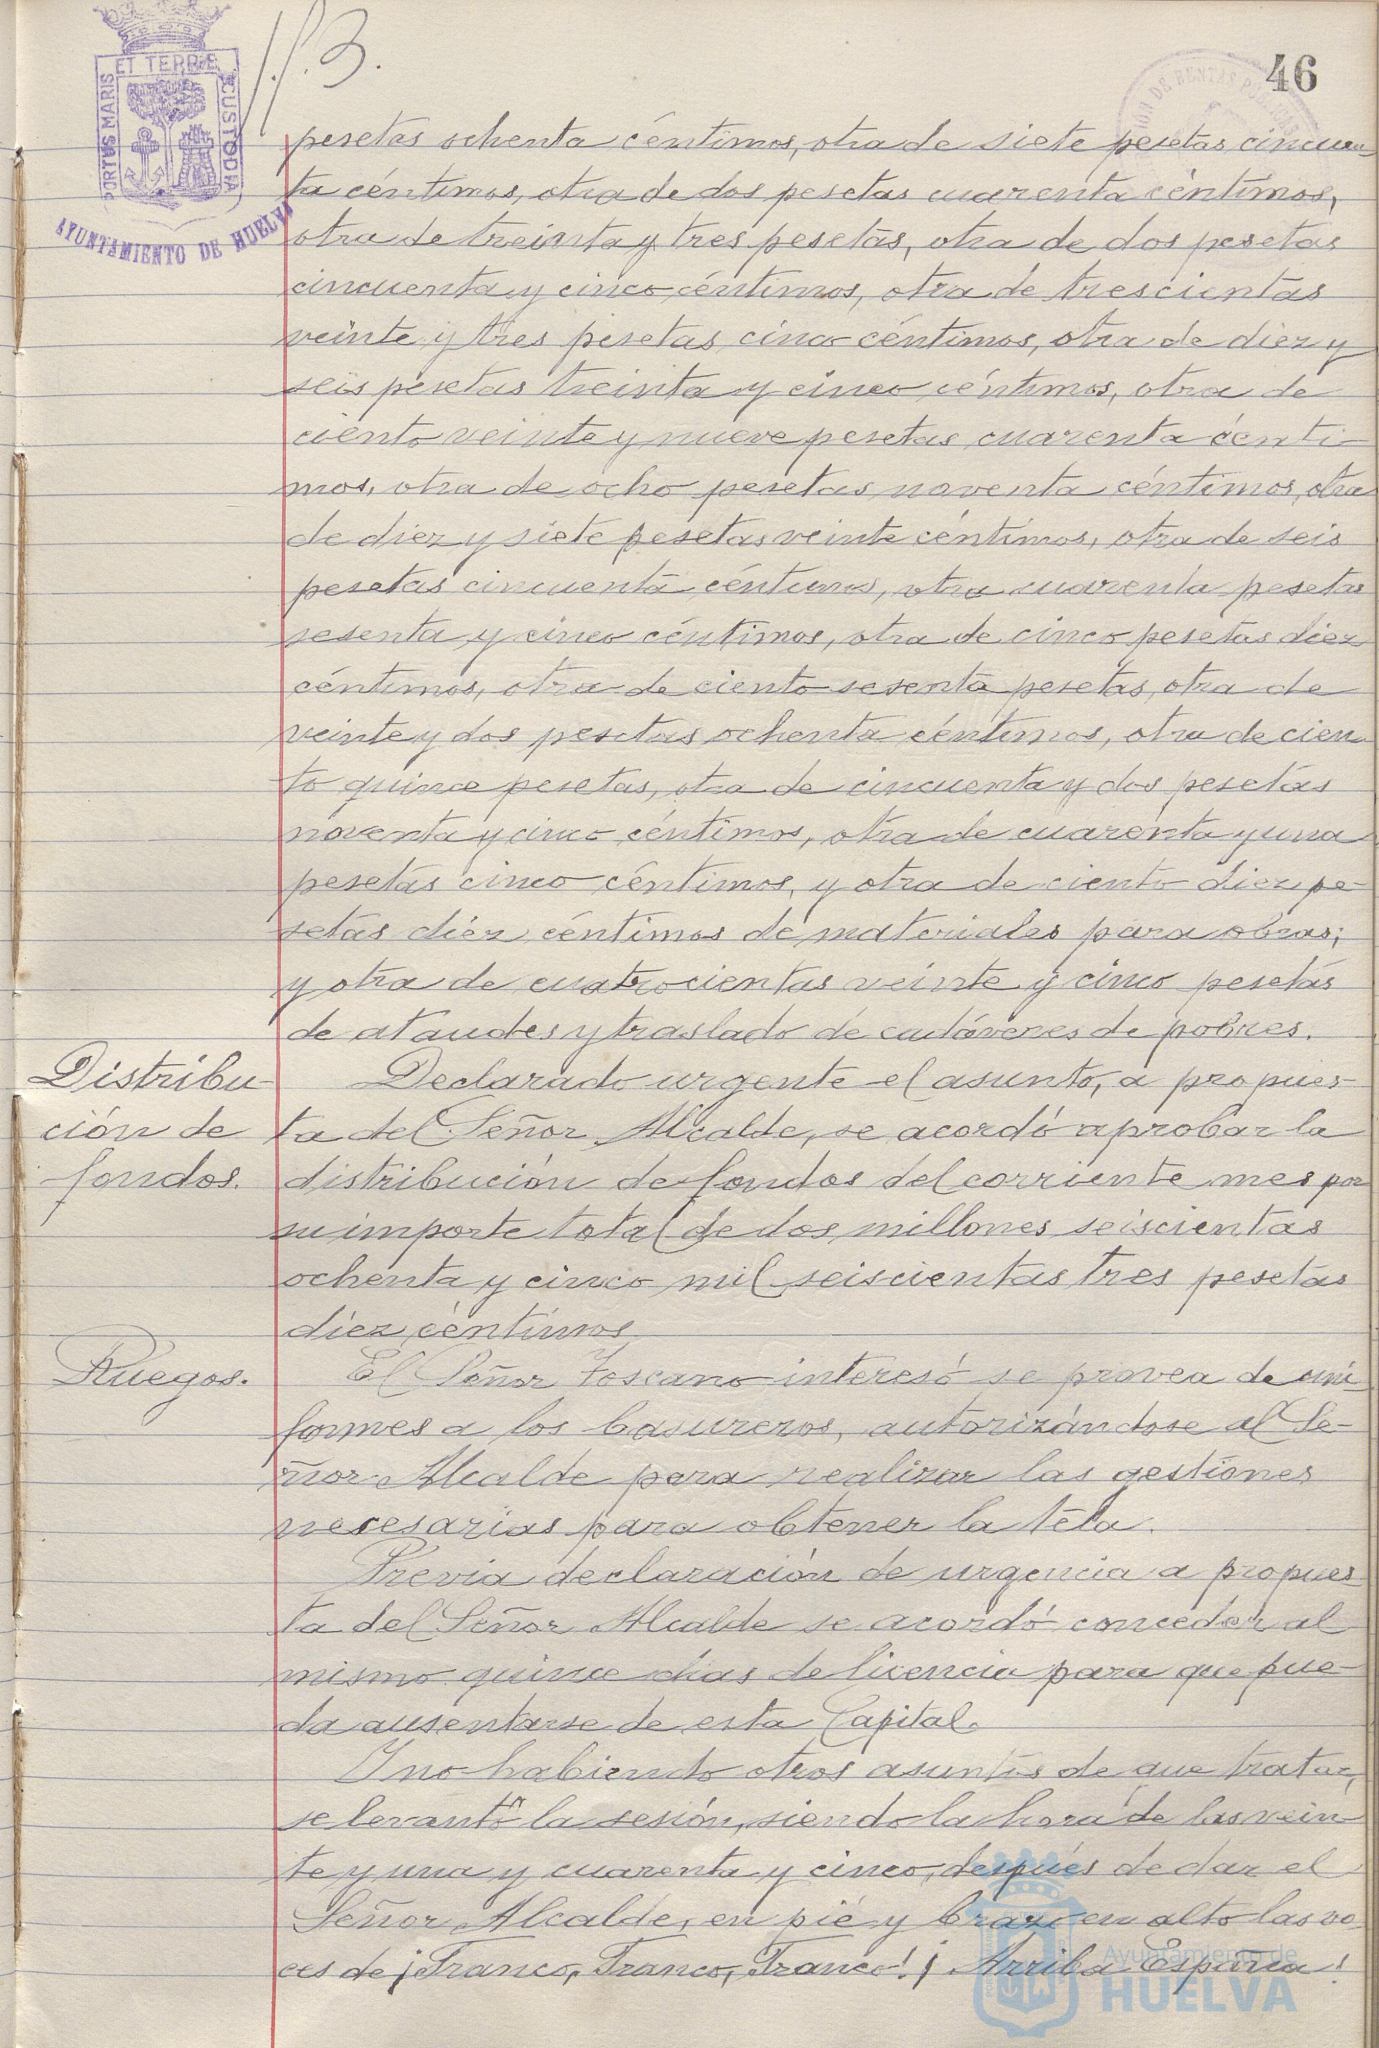 ET TERRE
PORTUS MARIS
CUSTODIA
AYUNTAMIENTO DE HUELVA
46
pesetas ochenta céntimos, otra de siete pesetas cincuen-
ta céntimos, otra de dos pesetas cuarenta céntimos,
otra de treinta y tres pesetas, otra de dos pesetas
cincuenta y cinco céntimos, otra de trescientas
veinte y tres pesetas cinco céntimos, otra de diez y
seis pesetas treinta y cinco céntimos, otra de
ciento veinte y nueve pesetas cuarenta cénti-
mos, otra de ocho pesetas noventa céntimos, otra
de diez y siete pesetas veinte céntimos, otra de seis
pesetas cincuenta céntimos, otra cuarenta pesetas
sesenta y cinco céntimos, otra de cinco pesetas diez
céntimos, otra de ciento sesenta pesetas, otra de
veinte y dos pesetas ochenta céntimos, otra de cien-
to quince pesetas, otra de cincuenta y dos pesetas
noventa y cinco céntimos, otra de cuarenta y una
pesetas cinco céntimos, y otra de ciento diez pe-
setas diez céntimos de materiales para obras;
y otra de cuatrocientas veinte y cinco pesetas
de ataudes y traslado de cadáveres de pobres.
Distribu-
ción de
fondos.
Declarado urgente el asunto, a propues-
ta del Señor Alcalde, se acordó aprobar la
distribución de fondos del corriente mes por
su importe total de dos millones seiscientas
ochenta y cinco mil seiscientas tres pesetas
diez céntimos
Ruegos.
El Señor Toscano interesó se provea de uni-
formes a los basureros, autorizándose al Se-
ñor Alcalde para realizar las gestiones
necesarias para obtener la tela.
Previa declaración de urgencia a propues-
ta del Señor Alcalde se acordó conceder al
mismo quince dias de licencia para que pue-
da ausentarse de esta Capital.
Y no habiendo otros asuntos de que tratar,
se levantó la sesión, siendo la hora de las vein-
te y una y cuarenta y cinco, después de dar el
Señor Alcalde, en pié y brazo en alto las vo-
ces de ¡Franco, Franco, Franco! ¡Arriba España!
Ayuntamiento de
HUELVA